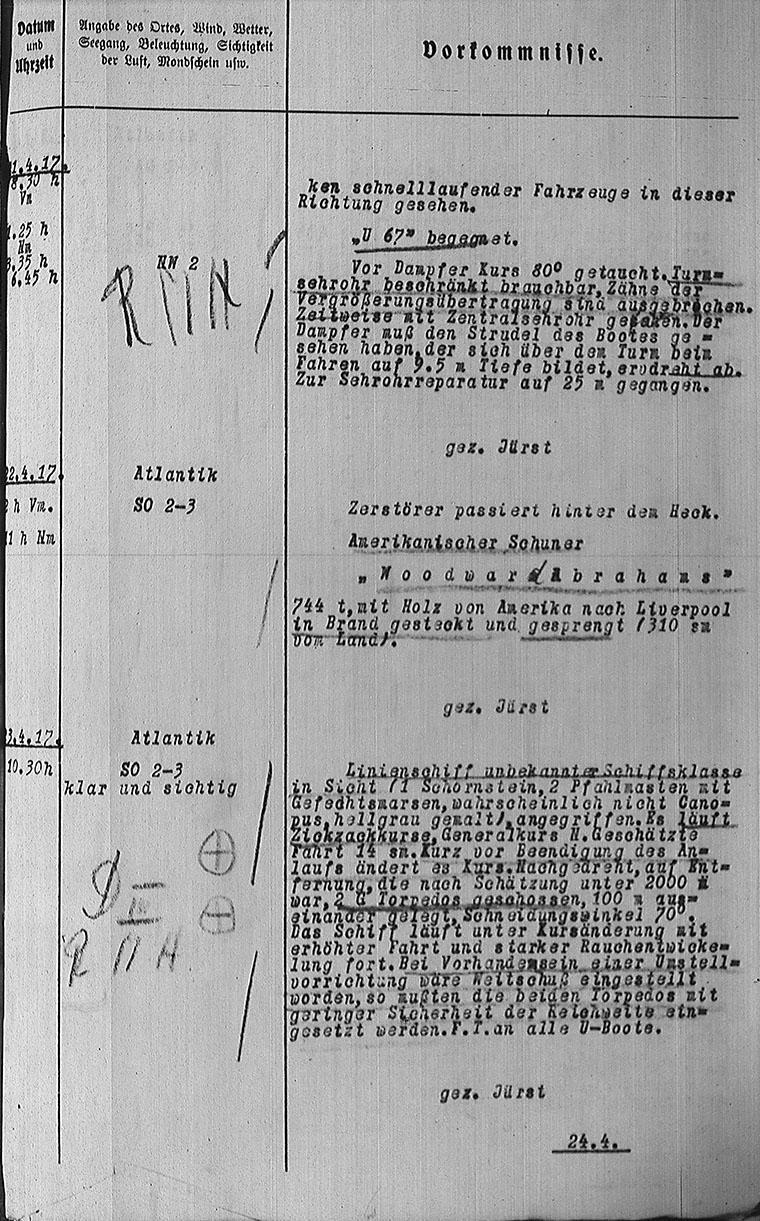 Datum
und
Uhrzeit
Angabe des Ortes, Wind, Wetter,
Seegang, Beleuchtung, Sichtigkeit
der Luft, Mondschein usw.
Vorkommnisse.
1.4.17.
8.30 h
Vm
ken schnelllaufender Fahrzeuge in dieser
Richtung gesehen.
1.25 h
Nm
„U 67" begegnet.
3.35 h
6.45 h
NW 2
Vor Dampfer Kurs 80° getaucht. Turm=
sehrohr beschränkt brauchbar, Zähne der
Vergrößerungsübertragung sind ausgebrochen.
Zeitweise mit Zentralsehrohr gefahren. Der
Dampfer muß den Strudel des Bootes ge =
sehen haben, der sich über dem Turm beim
Fahren auf 9.5 m Tiefe bildet, er dreht ab.
Zur Sehrohrreparatur auf 25 m gegangen.
gez. Jürst
22.4.17.
Atlantik
h Vm.
SO 2-3
Zerstörer passiert hinter dem Heck.
11 h Nm
Amerikanischer Schuner
„Woodward Abrahams"
744 t, mit Holz von Amerika nach Liverpool
in Brand gesteckt und gesprengt (310 sm
vom Land).
gez. Jürst
23.4.17.
Atlantik
10.30h
SO 2-3
klar und sichtig
Linienschiff unbekannter Schiffsklasse
in Sicht (1 Schornstein, 2 Pfahlmasten mit
Gefechtsmarsen, wahrscheinlich nicht Cano=
pus, hellgrau gemalt), angegriffen. Es läuft
Zickzackkurse, Generalkurs N. Geschätzte
Fahrt 14 sm. Kurz vor Beendigung des An=
laufs ändert es Kurs. Nachgedreht, auf Ent=
fernung, die nach Schätzung unter 2000 m
war, 2 G Torpedos geschossen, 100 m aus=
einander gelegt, Schneidungswinkel 70°.
Das Schiff läuft unter Kursänderung mit
erhöhter Fahrt und starker Rauchentwicke=
lung fort. Bei Vorhandensein einer Umstell=
vorrichtung wäre Weitschuß eingestellt
worden, so mußten die beiden Torpedos mit
geringer Sicherheit der Reichweite ein=
gesetzt werden. F.T. an alle U-Boote.
gez. Jürst
24.4.